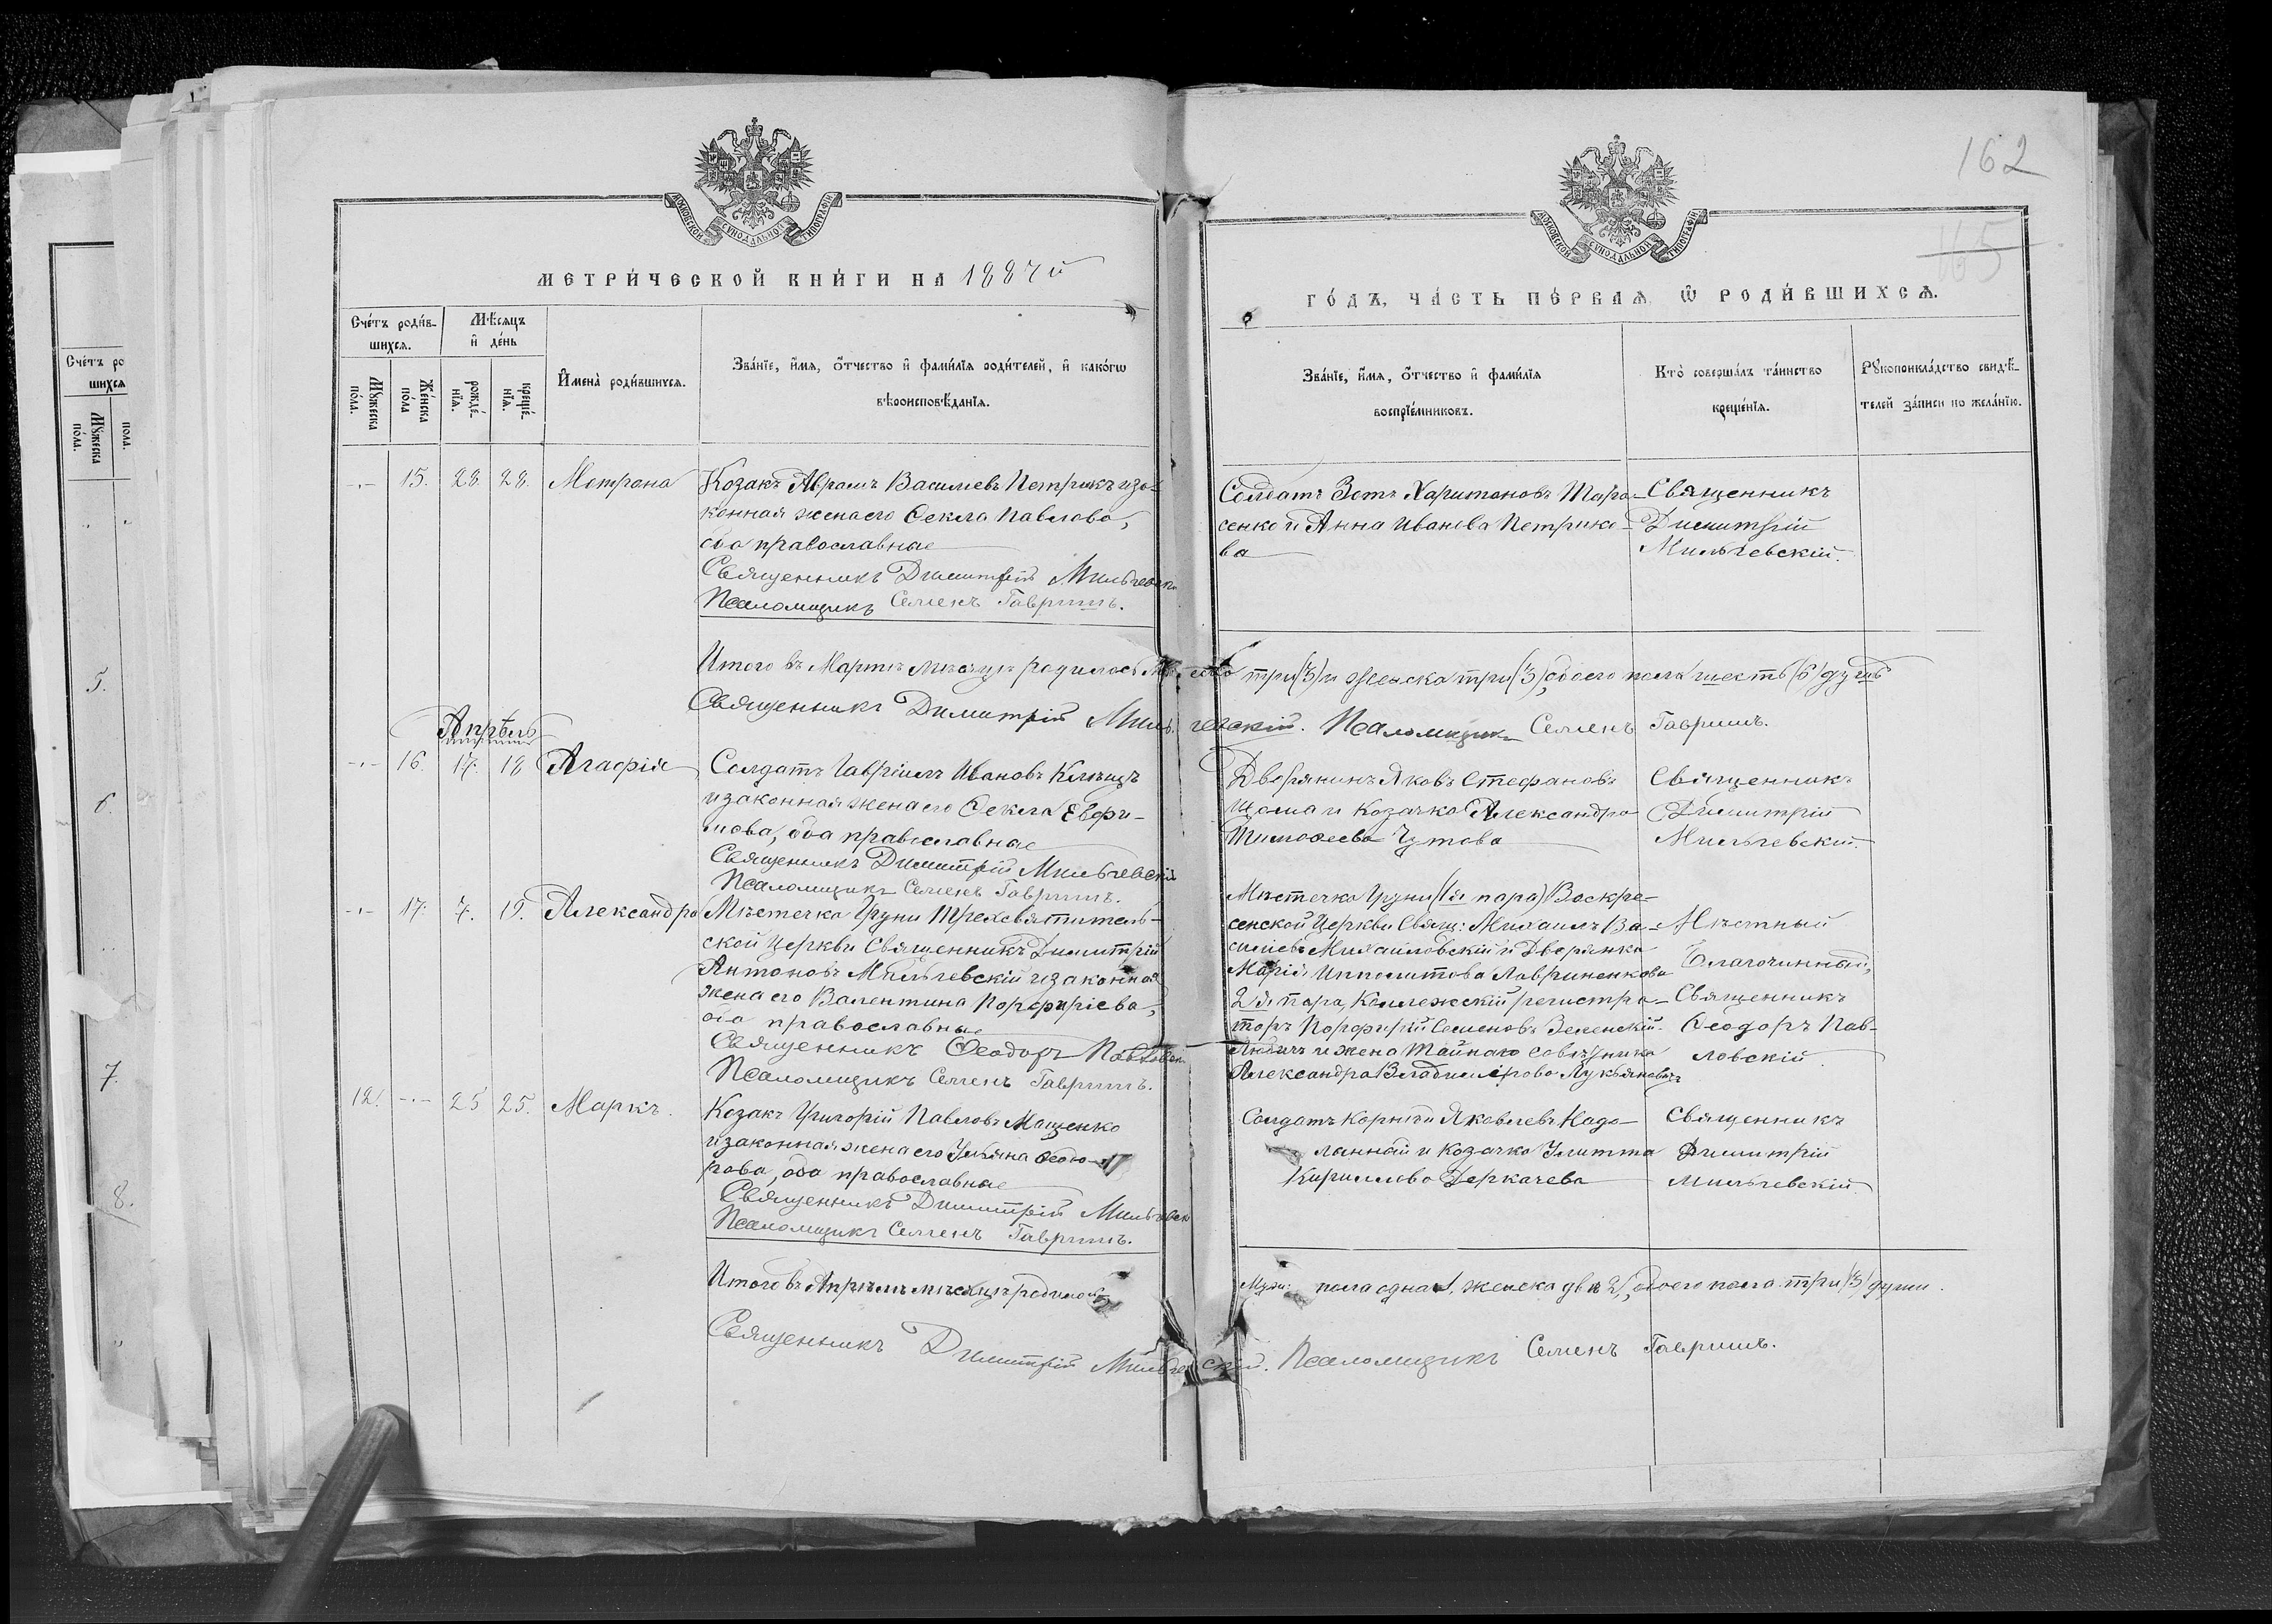 162
165
МОСКОВСКОЙ СѴНОДАЛЬНОЙ ТИПОГРАФІИ
МОСКОВСКОЙ СѴНОДАЛЬНОЙ ТИПОГРАФІИ
МЕТРИ́ЧЕСКОЙ КНИ́ГИ НА 1887й
ГО́ДЪ, ЧА́СТЬ ПЕ́РВАѦ Ѡ РОДИ́ВШИХСѦ.
Счетъ родив-
шихся.
Мѣсяцъ
и день
Мужеска пола.
Женска пола
рожде-
нія.
креще-
нія.
Имена родившихся.
Званіе, имя, отчество и фамилія родителей, и какогω
вѣроисповѣданія.
Званіе, имя, отчество и фамилія
воспріемниковъ.
Кто совершалъ таинство
крещенія.
Рукоприкладство свидѣ-
телей записи по желанію.
Счетъ ро
шихся
Мужеска пола.
пола.
5.
6.
7.
8.
-.- 15. 28. 28. Матрона
Козакъ Аврамъ Василіевъ Петрикъ и зо-
конная жена его Ѳекла Павлова,
оба православные
Священникъ Димитрій Мильчевскі
Псаломщикъ Семенъ Гавришъ.
Солдатъ Зотъ Харитоновъ Тара-
сенко и Анна Иванова Петрико-
ва
Священникъ
Димитрій
Мильчевскій.
Итого въ Мартѣ мѣсяцѣ родилось три (3) и женска три (3), обоего пола шесть (6) душъ
Священникъ Димитрій Мильчевскій. Псаломщикъ Семенъ Гавришъ.
Апрѣль
-.- 16. 17. 18 Агафія
Солдатъ Гавріилъ Ивановъ
и законная жена его Ѳекла Евфи-
мова, оба православные
Священникъ Димитрій Мильчевскій
Псаломщикъ Семенъ Гавришъ.
Дворянинъ Яковъ Стефановъ
и Козачка Александра
Тимоѳеева
Священникъ
Димитрій
Мильчевскій.
-.- 17. 7. 19. Александра
Мѣстечка Груни Трехсвятитель-
ской Церкви Священникъ Димитрій
Антоновъ Мильчевскій и законная
жена его Валентина Порфиріева,
оба православные
Священникъ Ѳеодоръ Павловскі
Псаломщикъ Семенъ Гавришъ.
Мѣстечка Груни (1я пара) Воскре-
сенской Церкви Свящ: Михаилъ Ва-
силіевъ Михайловскій и Дворянка
Марія Ипполитова Лавриненкова
2я пара, Коллежскій регистра-
торъ Порфирій Семеновъ Зеленскій-
и жена Тайнаго совѣтника
Александра Владимірова Лукьяновичъ
Мѣстный
Благочинный,
Священникъ
Ѳеодоръ Пав-
ловскій
12. -.- 25 25. Маркъ.
Козакъ Григорій Павловъ Мащенко
и законная жена его Ульяна Ѳеодо-
рова, оба православные
Священникъ Димитрій Мильчевск
Псаломщикъ Семенъ Гавришъ.
Солдатъ Корнѣй Яковлевъ Надо-
ланный и козачка Улитта
Кириллова Деркачева
Священникъ
Димитрій
Мильчевскій.
Итого въ Апрѣлѣ мѣсяцѣ родилось Муж: пола одна 1, женска двѣ 2, обоего пола три (3) души.
Священникъ Димитрій Мильчевскій. Псаломщикъ Семенъ Гавришъ.